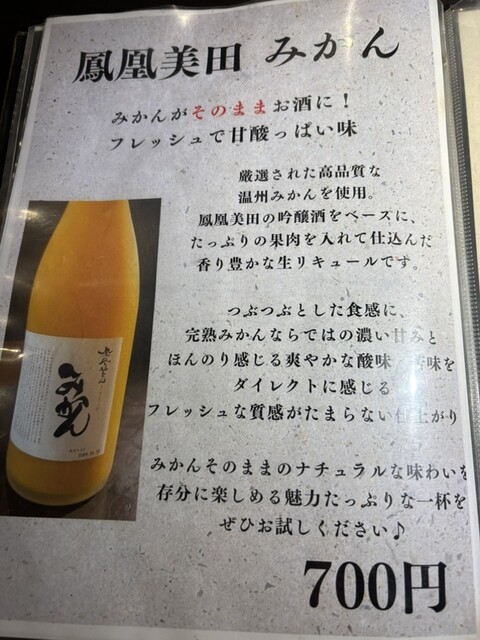 鳳凰美田 みかん
みかんがそのままお酒に！
フレッシュで甘酸っぱい味
厳選された高品質な
温州みかんを使用。
鳳凰美田の吟醸酒をベースに、
たっぷりの果肉を入れて仕込んだ
香り豊かな生リキュールです。
つぶつぶとした食感に、
完熟みかんならではの濃い甘みと
ほんのり感じる爽やかな酸味 苦味を
ダイレクトに感じる
フレッシュな質感がたまらない仕上がり
みかんそのままのナチュラルな味わいを
存分に楽しめる魅力たっぷりな一杯を
ぜひお試しください♪
みかん
700円